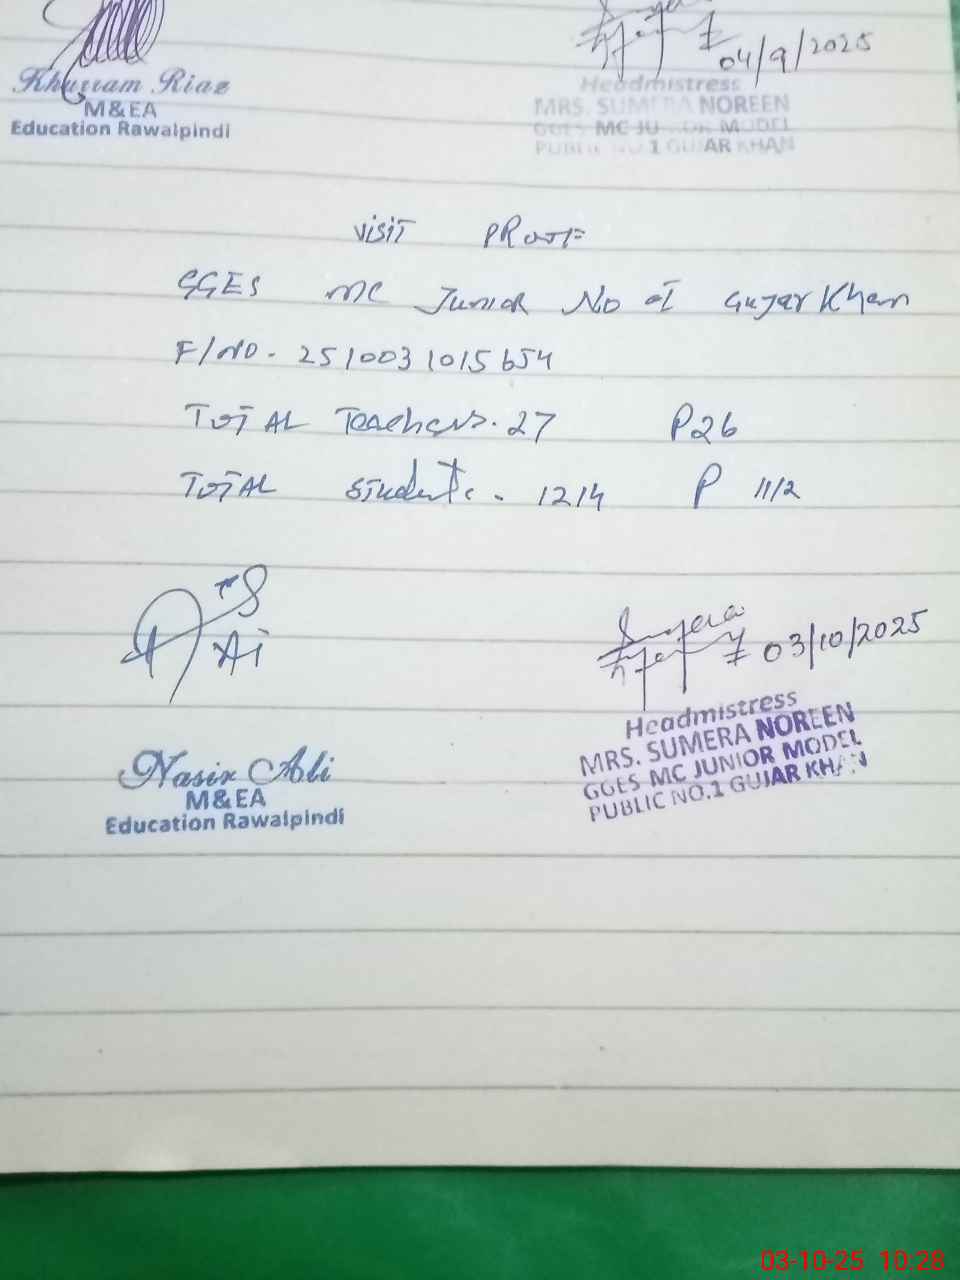 04/9/2025
Khurram Riaz
M&EA
Education Rawalpindi
Headmistress
MRS. SUMERA NOREEN
GGES MC JUNIOR MODEL
PUBLIC NO.1 GUJAR KHAN
Visit PRoof
GGES MC Junior No 01 Gujar Khan
F/NO. 2510031015654
TOTAL Teachers. 27 P26
TOTAL Students. 1214 P 1112
Sumera
03/10/2025
Nasir Ali
M&EA
Education Rawalpindi
Headmistress
MRS. SUMERA NOREEN
GGES MC JUNIOR MODEL
PUBLIC NO.1 GUJAR KHAN
03-10-25 10:28